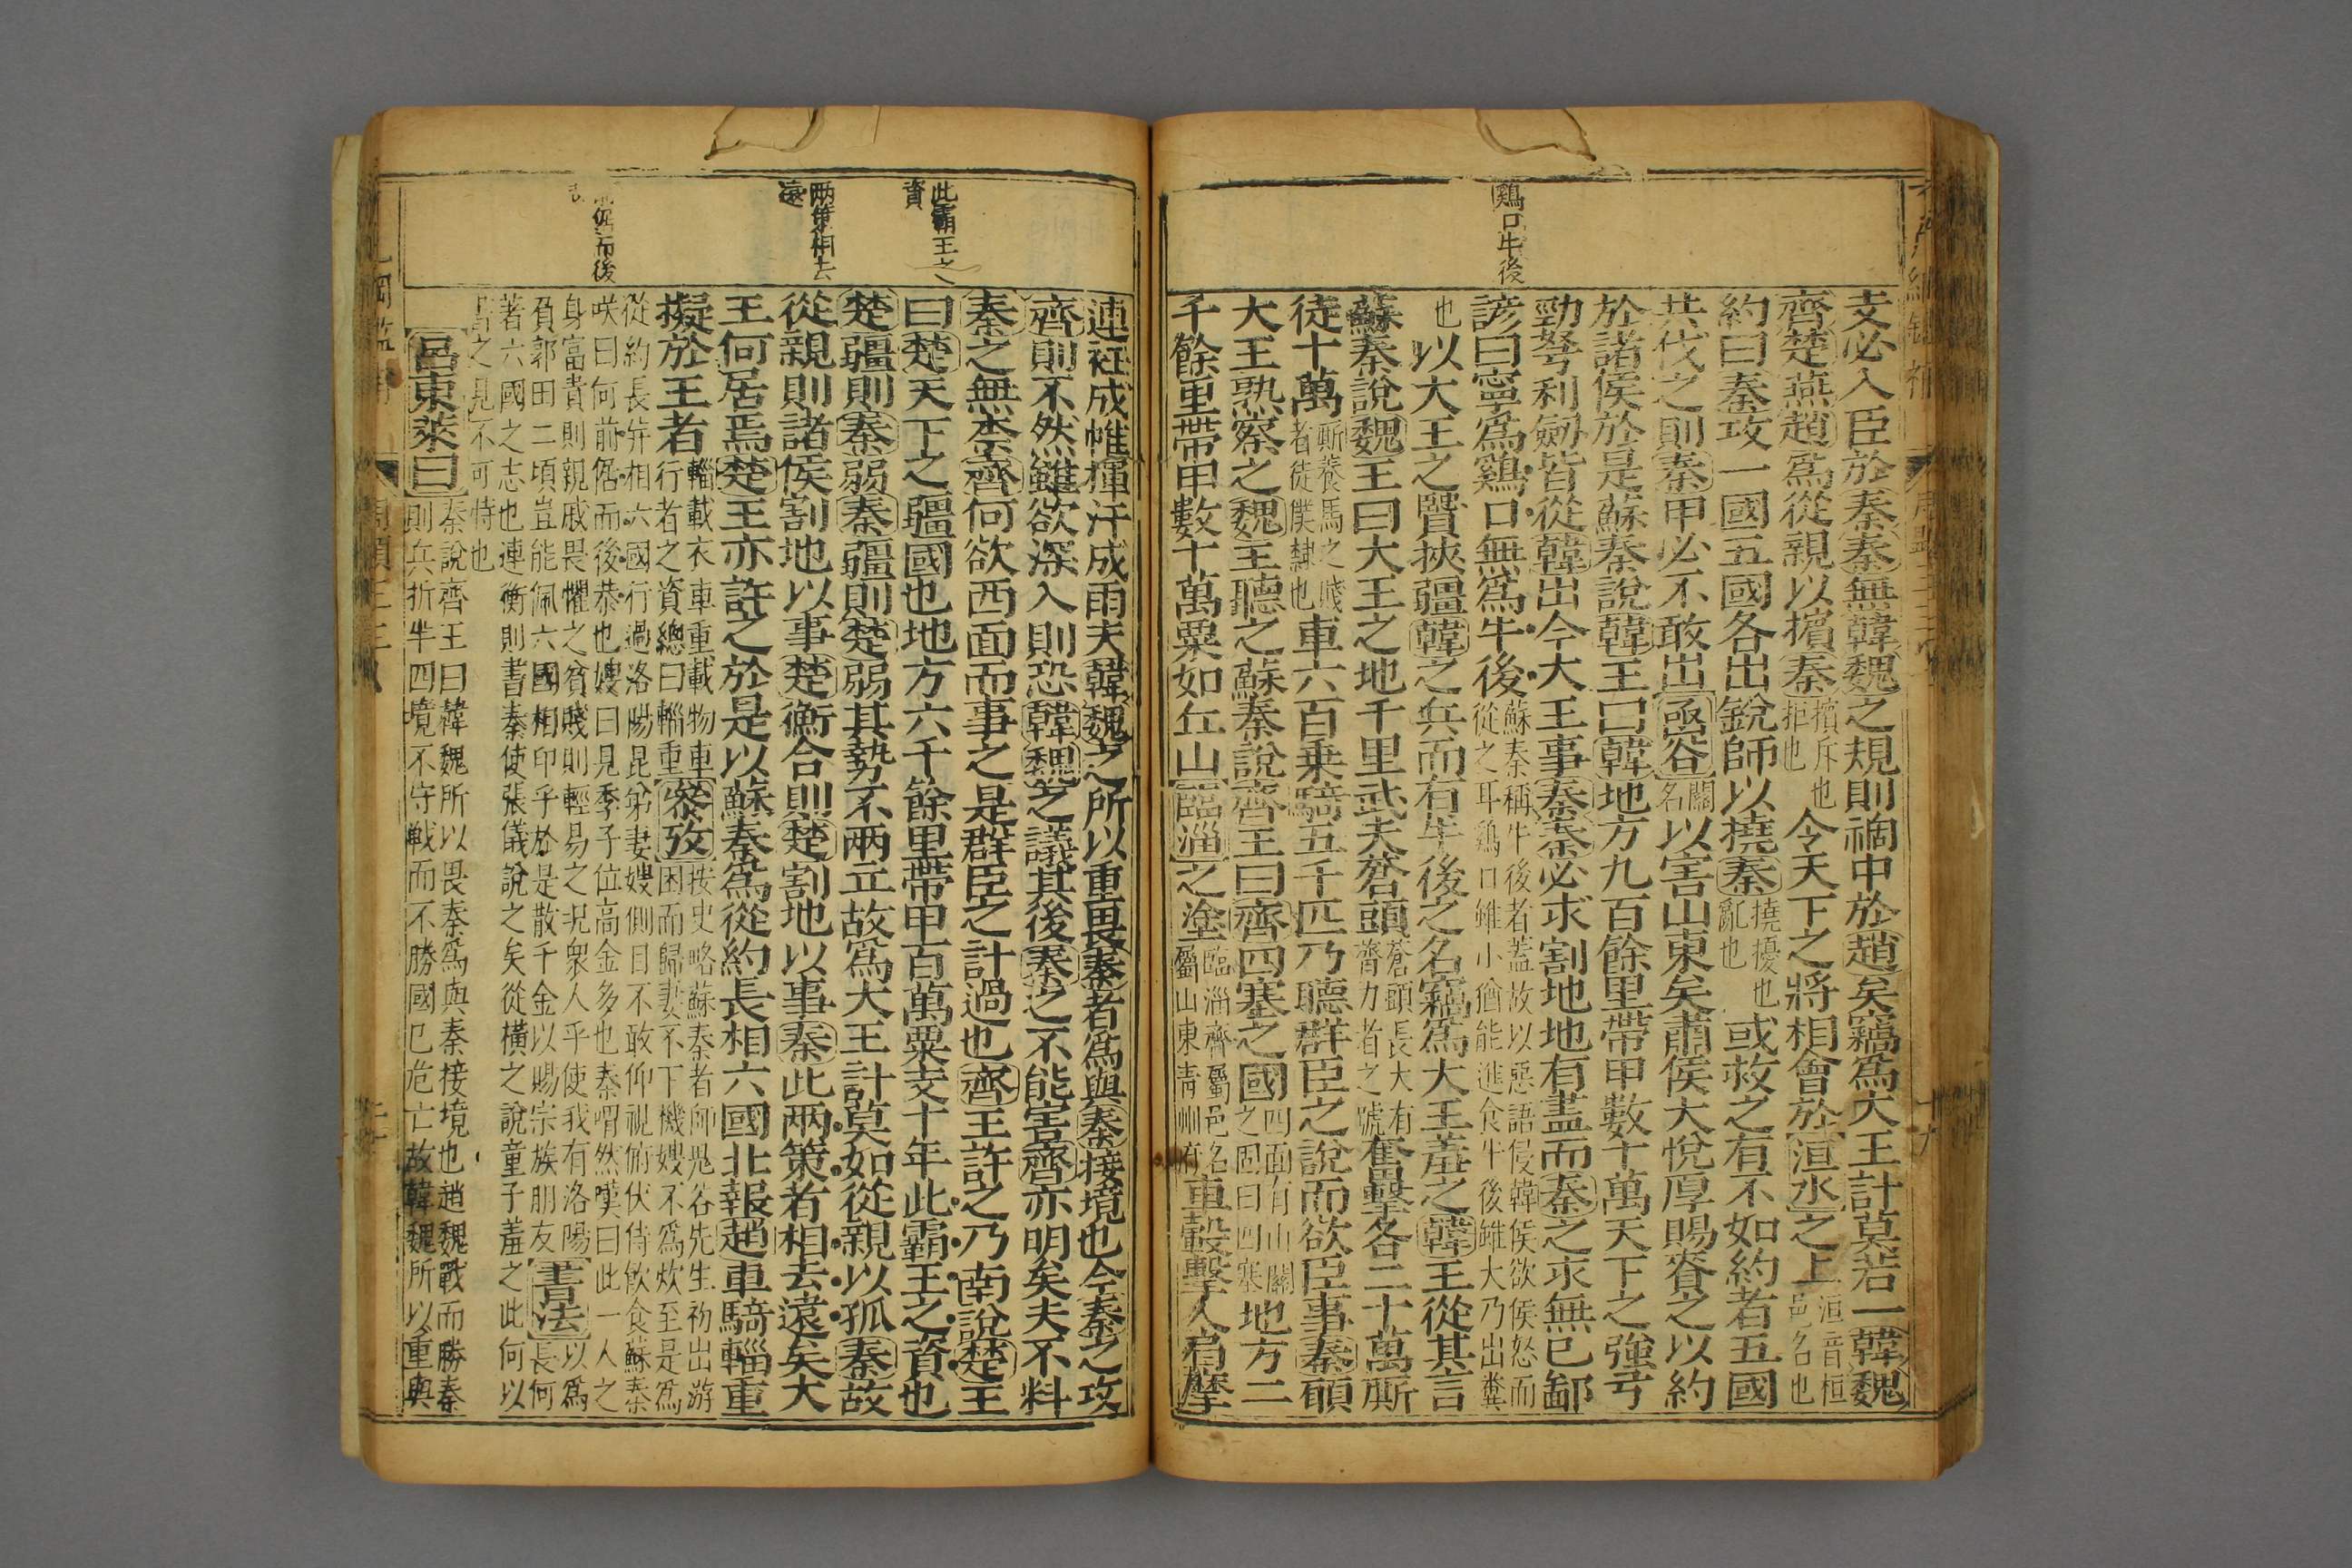 鷄口牛後
支必入臣於秦秦無韓魏之規則禍中於趙矣竊爲大王計莫若一韓魏
齊楚燕趙爲從親以擯秦擯斥也拒也令天下之將相會於洹水之上洹音桓邑名也
約曰秦攻一國五國各出銳師以撓秦撓擾也亂也或救之有不如約者五國
共伐之則秦甲必不敢出函谷關名以害山東矣肅侯大悅厚賜賚之以約
於諸侯於是蘇秦說韓王曰韓地方九百餘里帶甲數十萬天下之強弓
勁弩利劒皆從韓出今大王事秦秦必求割地地有盡而秦之求無已鄙
諺曰寧爲鷄口無爲牛後蘇秦稱牛後者蓋故以惡語侵韓侯欲候怒而從之耳鷄口雖小猶能進食牛後雖大乃出糞
也以大王之賢挾疆韓之兵而有牛後之名竊爲大王羞之韓王從其言
蘇秦說魏王曰大王之地千里武夫蒼頭蒼頭長大有膂力者之號奮擊各二十萬厮
徒十萬厮養馬之賤者徒僕隸也車六百乗騎五千匹乃聽群臣之說而欲臣事秦願
大王熟察之魏王聽之蘇秦說齊王曰齊四塞之國四面有山關之固曰四塞地方二
千餘里帶甲數十萬粟如丘山臨淄之塗臨淄齊屬邑名屬山東青州府車轂擊人肩摩
此霸王之資
兩策相去遠
倨而後
連衽成帷揮汗成雨夫韓魏之所以重畏秦者爲與秦接境也今秦之攻
齊則不然雖欲深入則恐韓魏之議其後秦之不能害齊亦明矣夫不料
秦之無柰齊何欲西面而事之是群臣之計過也齊王許之乃南說楚王
曰楚天下之疆國也地方六千餘里帶甲百萬粟支十年此霸王之資也
楚疆則秦弱秦疆則楚弱其勢不兩立故爲大王計莫如從親以孤秦故
從親則諸侯割地以事楚衡合則楚割地以事秦此兩策者相去遠矣大
王何居焉楚王亦許之於是以蘇秦爲從約長相六國北報趙車騎輜重
擬於王者輜載衣車重載物車行者之資總曰輜重叅攷按史略蘇秦者師鬼谷先生初出游困而歸妻不下機嫂不爲炊至是爲
從約長并相六國行過洛陽昆弟妻嫂側目不敢仰視俯伏侍飲食蘇秦
咲曰何前倨而後恭也嫂曰見季子位高金多也秦喟然嘆曰此一人之
身富貴則親戚畏懼之貧賤則輕易之况衆人乎使我有洛陽書法以爲
負郭田二頃豈能佩六國相印乎於是散千金以賜宗族朋友長何
著六國之志也連衡則書秦使張儀說之矣從橫之說童子羞之此何以
書之見不可恃也
呂東萊曰秦說齊王曰韓魏所以畏秦爲與秦接境也趙魏戰而勝秦
則兵折半四境不守戰而不勝國已危亡故韓魏所以重與